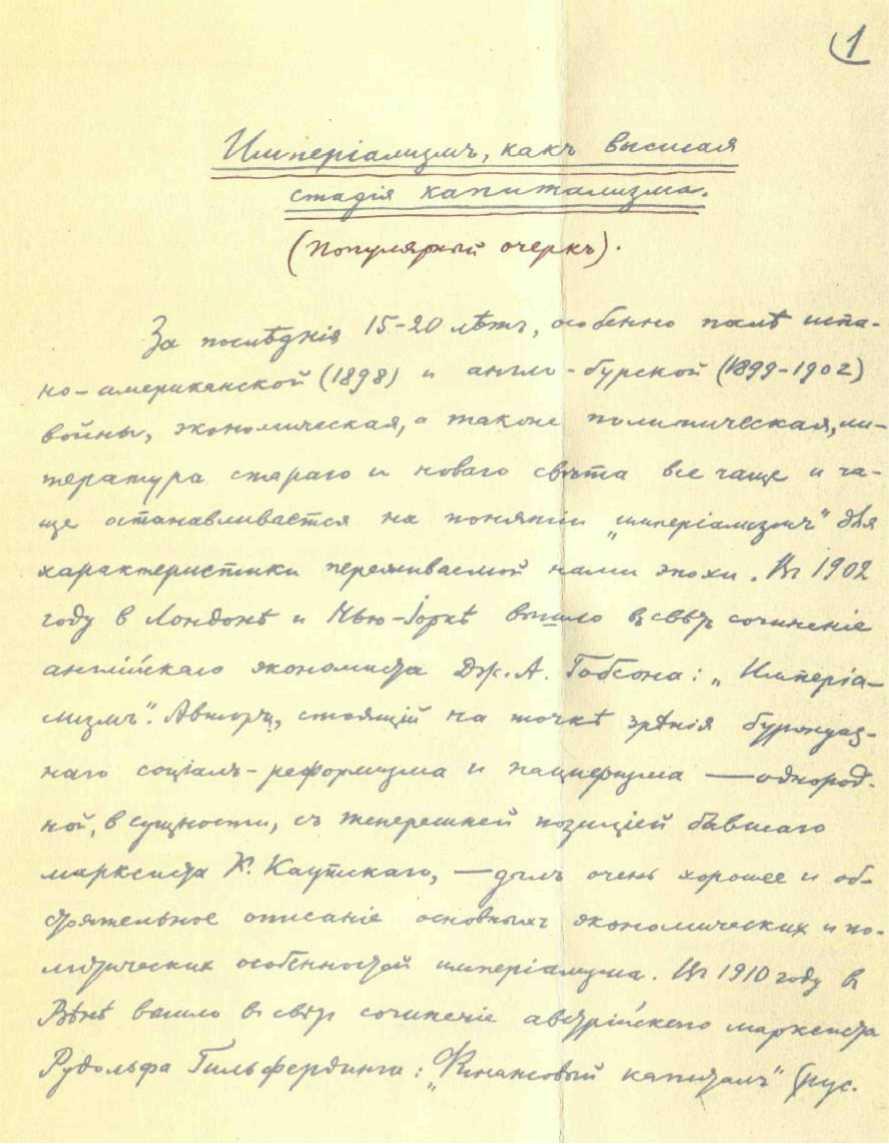 1
Имперіализмъ, какъ высшая
стадія капитализма.
(Популярный очеркъ).
За послѣднія 15-20 лѣтъ, особенно послѣ испа-
но-американской (1898) и англо-бурской (1899-1902)
войны, экономическая, а также политическая, ли-
тература стараго и новаго свѣта все чаще и ча-
ще останавливается на понятіи „имперіализмъ" для
характеристики переживаемой нами эпохи. Въ 1902
году в Лондонѣ и Нью-Іоркѣ вышло в свѣтъ сочиненіе
англійскаго экономиста Дж. А. Гобсона: „Имперіа-
лизмъ". Авторъ, стоящій на точкѣ зрѣнія буржуаз-
наго соціалъ-реформизма и пацифизма — однород-
ной, в сущности, съ теперешней позиціей бывшаго
марксиста К. Каутскаго, — далъ очень хорошее и об-
стоятельное описаніе основныхъ экономических и по-
литических особенностей имперіализма. Въ 1910 году в
Вѣнѣ вышло в свѣтъ сочиненіе австрійскаго марксиста
Рудольфа Гильфердинга: „Финансовый капиталъ" (рус.